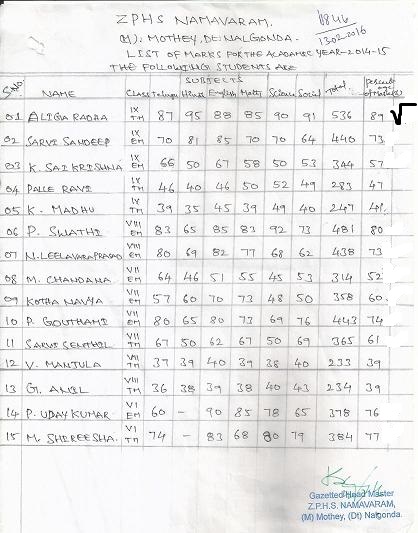 Z.P.H.S NAMAVARAM.
(M): MOTHEY, Dt: NALGONDA.
13-02-2016
LIST OF MARKS FOR THE ACADAMIC YEAR-2014-15
THE FOLLOWING STUDENTS ARE
SUBJECTS
S.No. NAME Class Telugu Hindi English Maths Science Social Total
01 RADHA IX TM 87 95 88 85 90 91 536 89 √
02 SARVI SANDEEP IX EM 70 81 85 70 70 64 440 73
03 K. SAI KRISHNA IX EM 66 50 67 58 50 53 344 57
04 PALLE RAVI IX TM 46 40 46 50 52 49 283 47
05 K. MADHU IX TM 39 35 45 39 49 40 247 41
06 P. SWATHI VIII EM 83 65 85 83 92 73 481 80
07 N. LEELAVARAPRASAD VIII EM 80 69 82 77 68 62 438 73
08 M. CHANDANA VIII EM 64 46 51 55 45 53 314 52
09 KOTHA NAVYA VIII EM 57 60 70 73 48 50 358 60
10 P. GOUTHAMI VIII EM 80 65 80 73 69 76 443 74
11 SARVI SENTHIL VII TM 67 50 62 67 50 69 365 61
12 V. MANTULA VII TM 37 39 40 39 38 40 233 39
13 G. ANIL VII TM 36 38 39 38 40 43 234 39
14 P. UDAY KUMAR VI EM 60 - 90 85 78 65 378 76
15 M. SHEREESHA VI TM 74 - 83 68 80 79 384 77
Gazetted Head Master
Z.P.H.S. NAMAVARAM,
(M) Mothey, (Dt) Nalgonda.